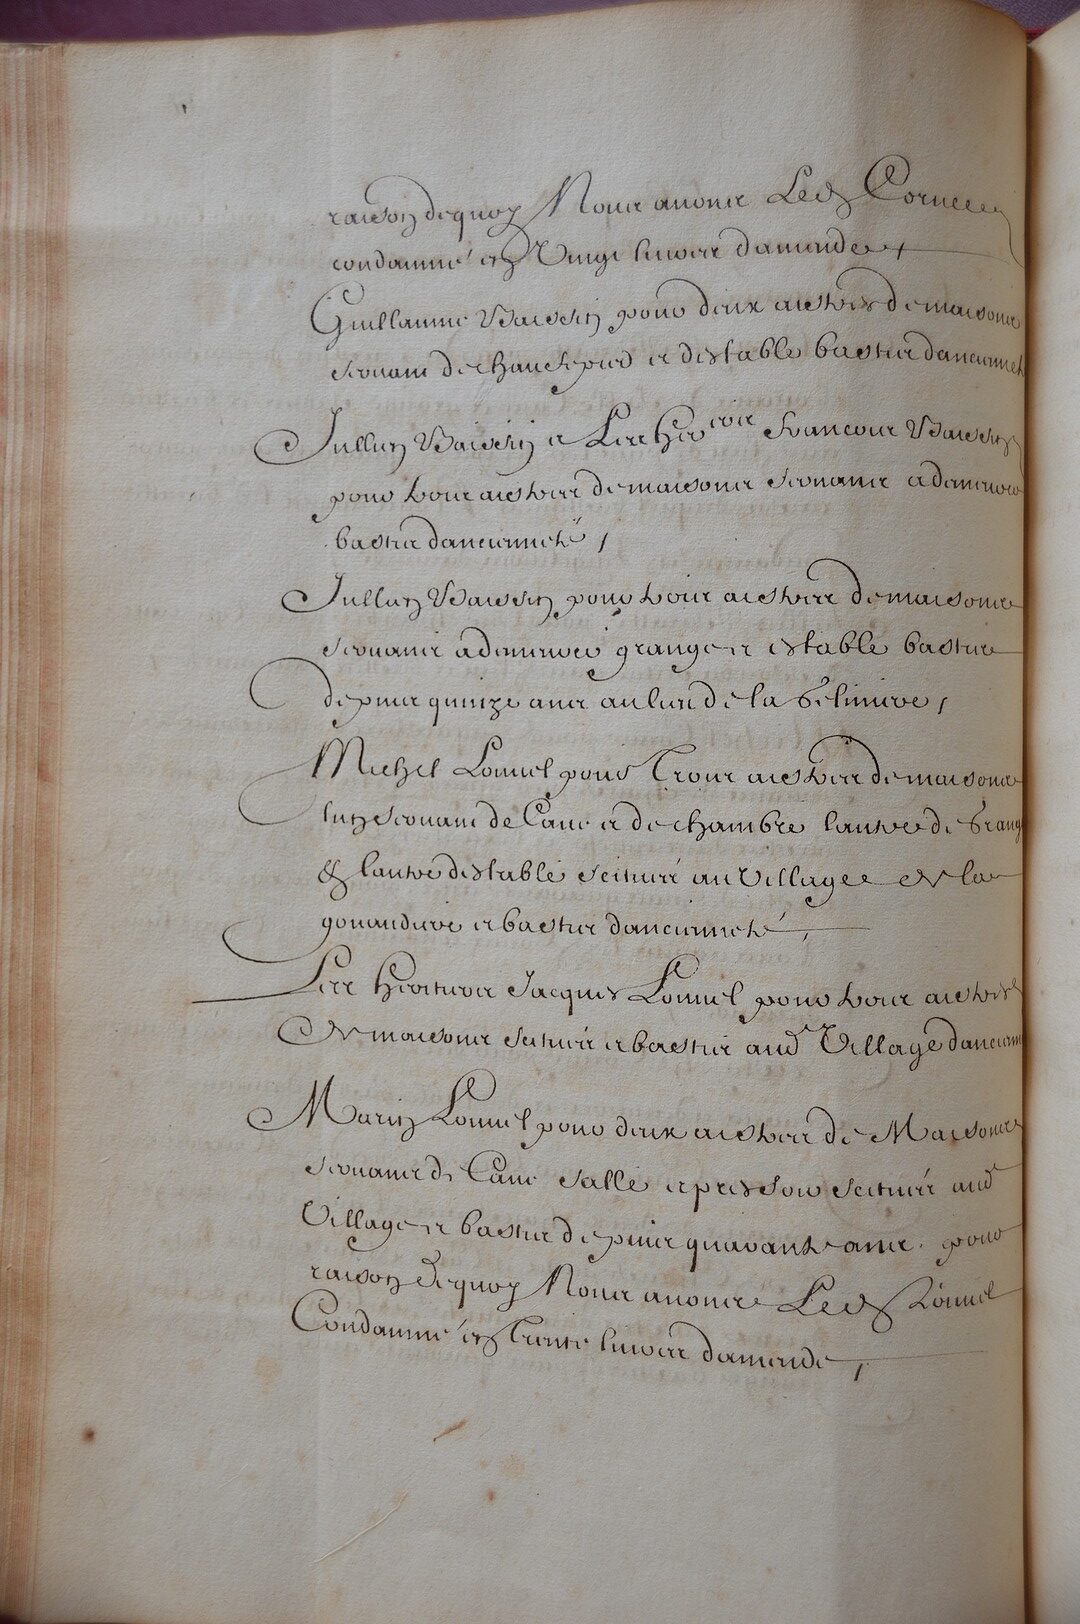 raison dequoy Nous avons Led Corneille
condamné en Vingt livres d'amende
Guillaume Vaissin pour deux aistres de maisons
servant de chauf et d'estable bastis d'ancienneté
Jullien Vaissin et Les her ers François Vaissin
pour trois aistres de maisons servans a demeurer
bastis d'ancienneté,
Jullien Vaissin pour trois aistres de maisons
servans a demeurer grange et estable bastis
depuis quinze ans au lieu de la
Michel Lonnel pour Trois aistres de maisons
l'un servant de Cave et de chambre l'autre de Grange
& l'autre d'estable scitués au Village de la
et bastis d'ancienneté,
Les heritiers Jacques Lonnel pour trois aistres
de maisons scitués et bastis aud Village d'ancienneté
Marin Lonnel pour deux aistres de Maisons
servans de Cave salle et pressoir scitués aud
Village et bastis depuis quarante ans. pour
raison dequoy Nous avons Led Lonnel
Condamné en Trente livres d'amende,